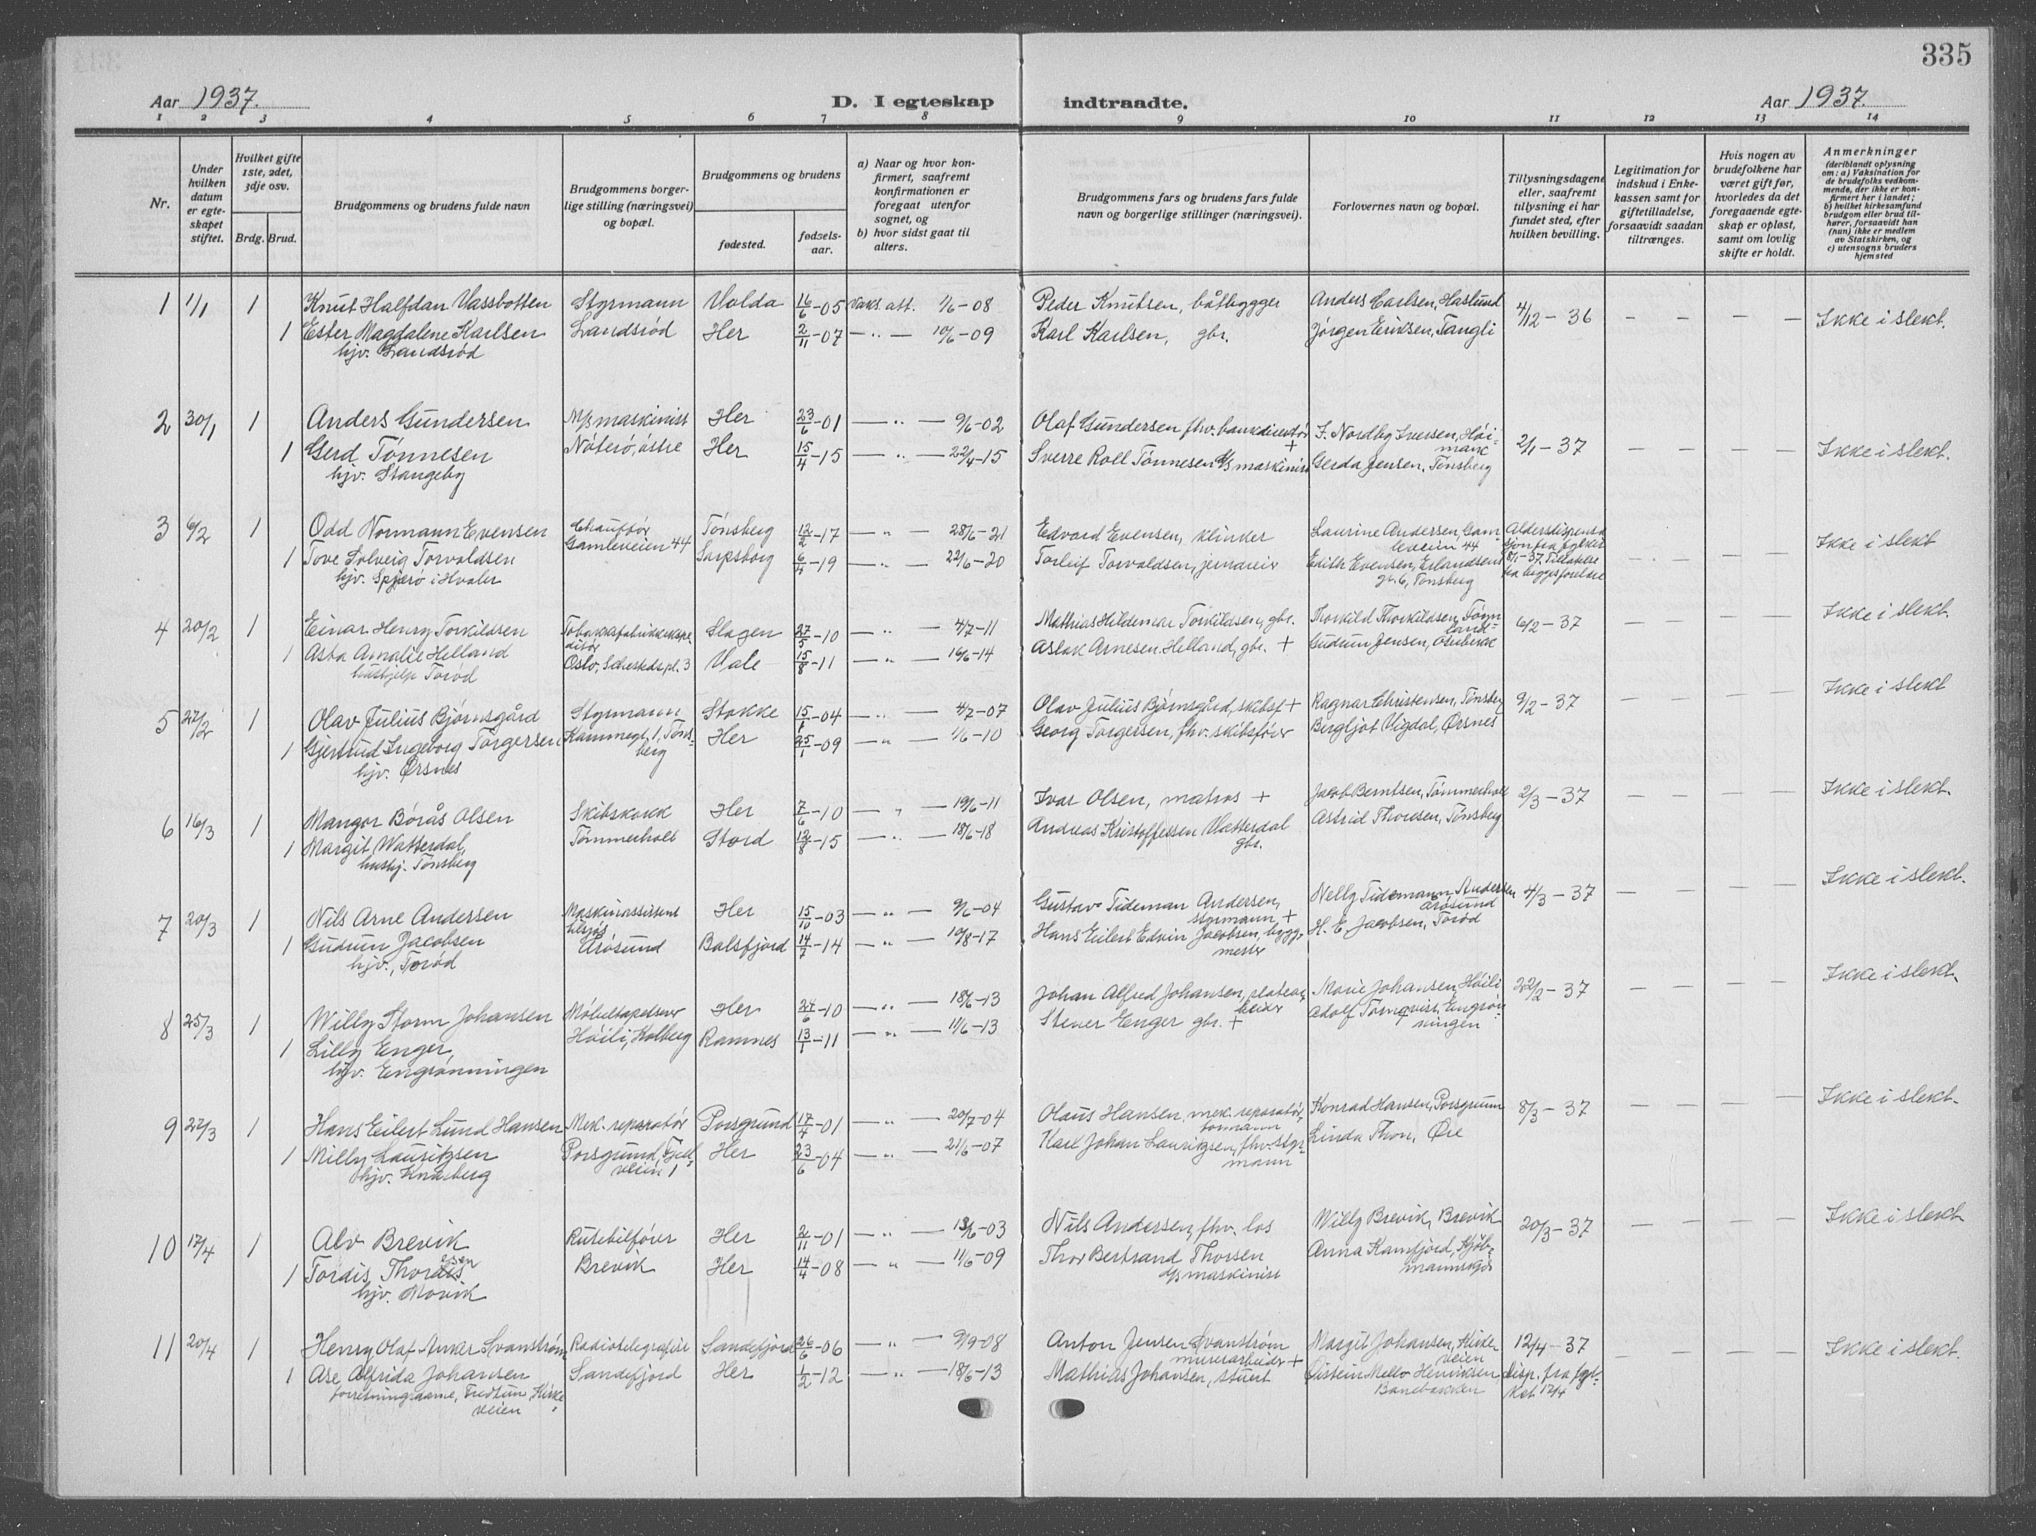 335
Aar 1937.
D. I egteskap
indtraadte.
Aar 1937.
1 2 3 4 5 6 7 8 9 10 11 12 13 14
Nr.
Under hvilken datum er egteskapet stiftet.
Hvilket gifte 1ste, 2det, 3dje osv.
Brdg. Brud.
Brudgommens og brudens fulde navn
Brudgommens borgerlige stilling (næringsvei) og bopæl.
Brudgommens og brudens
fødested.
fødselsaar.
a) Naar og hvor konfirmert, saafremt konfirmationen er foregaat utenfor sognet, og
b) hvor sidst gaat til alters.
Brudgommens fars og brudens fars fulde navn og borgerlige stillinger (næringsvei).
Forlovernes navn og bopæl.
Tillysningsdagene eller, saafremt tillysning ei har fundet sted, efter hvilken bevilling.
Legitimation for indskud i Enkekassen samt for giftetilladelse, forsaavidt saadan tiltrænges.
Hvis nogen av brudefolkene har været gift før, hvorledes da det foregaaende egteskap er opløst, samt om lovlig skifte er holdt.
Anmerkninger
(deriblandt oplysning om: a) Vaksination for de brudefolks vedkommende, der ikke er konfirmert her i landet; b) hvilket kirkesamfund brudgom eller brud tilhører, forsaavidt han (hun) ikke er medlem av Statskirken, og c) utensogns bruders hjemsted
1 1/1 1 Knut Halfdan Vassbotten Styrmann Volda 16/6-05 Vaks. att. 1/6-08 Peder Knutsen, båtbygger Anders Carlsen, Haslund 4/12-36 — — — — Ikke i slekt.
1 Ester Magdalene Karlsen Landsrød Her 2/11-07 — „ — 10/6-09 Karl Karlsen, gbr. Jørgen Eriksen, Tangli
hjv. Landsrød
2 30/1 1 Anders Gundersen M/s maskinist Her 23/6-01 — „ — 9/6-02 Olaf Gundersen fhv. bankdirektør + F. Nordby Iversen, Høimark 2/1-37 — — — — Ikke i slekt.
1 Gerd Tønnesen Nøterø, østre Her 15/4-15 — „ — 22/4-15 Sverre Roll Tønnesen d/s maskinist Gerda Jensen, Tønsberg
hjv. Stangeby
3 6/2 1 Odd Normann Evensen Chauffør Tønsberg 12/2-17 — „ — 28/6-21 Edvard Evensen, Laurine Andersen, Gamleveien 44 Ikke i slekt
1 Tove Solveig Torvaldsen Gamleveien 44 Sarpsborg 6/4-19 — „ — 22/6-20 Torleif Torvaldsen, Edith Evensen, Tønsberg
hjv. Spjærø i Hvaler
4 20/2 1 Einar Henry Torkildsen Slagen 27/5-10 — „ — 4/7-11 Mathias Hildemar Torkildsen, gbr. Thorkild Thorkildsen, 6/2-37 — — — Ikke i slekt.
1 Asta Amalie Helland Oslo, Schestedspl. 3 Vale 15/8-11 — „ — 16/6-14 Aslak Arnesen Helland, gbr. + Gudrun Jensen,
hushjelp Torød
5 27/2 1 Olav Julius Bjørnsgård Styrmann Stokke 15/1-04 — „ — 4/7-07 Olav Julius Bjørnsgård, skibsf + Ragnar Christensen, Tønsberg 9/2-37 — — — Ikke i slekt
1 Gjertrud Ingeborg Torgersen Kammegt. 1, Tønsberg Her 25/1-09 — „ — 1/6-10 Georg Torgersen, fhv. skibsfører Bergljot Vigdal, Ørsnes
hjv. Ørsnes
6 16/3 1 Mangor Børås Olsen Skibskokk Her 7/6-10 — „ — 19/6-11 Ivar Olsen, matros + Jacob Berntsen, Tømmerholt 2/3-37 — — — Ikke i slekt.
1 Margit Watterdal, Tømmerholt Stord 12/8-15 — „ — 18/6-18 Andreas Kristoffersen Vatterdal Astrid Thorsen, Tønsberg
hushj. Tønsberg gbr.
7 20/3 1 Nils Arne Andersen Maskinassistent tilsjøs Her 15/10-03 — „ — 9/6-04 Gustav Tideman Andersen, styrmann, + Nelly Tidemann Andersen Årøsund 4/3-37 — — — Ikke i slekt.
1 Gudrun Jacobsen Årøsund Balsfjord 14/7-14 — „ — 10/8-17 Hans Eilert Edvin Jacobsen, byggmester H. E. Jacobsen, Torød
hjv., Torød
8 25/3 1 Willy Storm Johansen Møbeltapetserer Her 24/6-10 — „ — 18/6-13 Johan Alfred Johansen, Marie Johansen, Høili 22/2-37 — — — Ikke i slekt.
1 Lilly Enger, Høili, Kolberg Ramnes 13/1-11 — „ — 11/6-13 Stener Enger gbr. + Adolf Tørnqvist, Engrønningen
hjv. Engrønningen
9 22/3 1 Hans Eilert Lund Hansen Mek. reparatør Porsgrund 17/4-01 — „ — 20/7-04 Olaus Hansen, mek. reparatør, formann Konrad Hansen, Porsgrunn 8/3-37 — — — Ikke i slekt.
1 Milly Lauritzsen Porsgrund, 1 Her 23/6-04 — „ — 21/6-07 Karl Johan Lauritzsen, fhv. styrmann Linda Thon, Øre
hjv. Knarberg
10 17/4 1 Alv Brevik Rutebilfører Her 2/11-01 — „ — 13/6-03 Nils Andersen, fhv. los Willy Brevik, Brevik 20/3-37 — — — Ikke i slekt
1 Tordis, Thorsen Brevik Her 14/4-08 — „ — 11/6-09 Thor Bertrand Thorsen Anna Kamfjord,
hjv. d/s maskinist
11 20/4 1 Henry Olaf Anker Svanstrøm Radiotelegrafist Sandefjord 26/6-06 — „ — 9/9-08 Anton Jensen Svanstrøm murerarbeider + Margit Johansen, Kirkeveien 12/4-37 — — — Ikke i slekt.
1 Åse Alfrida Johansen Sandefjord Her 1/2-12 — „ — 18/6-13 Mathias Johansen, stuert Øistein Mello Henriksen Banebakken disp. fra fylket 17/4
forretningsdame, Kirkeveien